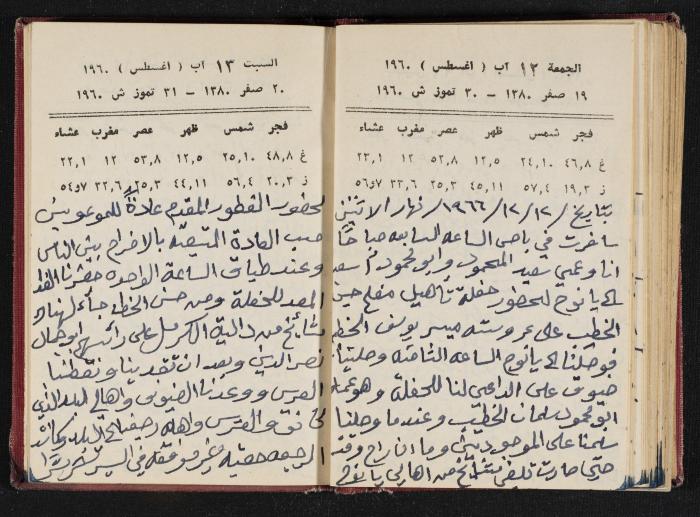 الجمعة ١٢ آب ( اغسطس ) ١٩٦٠
١٩ صفر ١٣٨٠ — ٣٠ تموز ش ١٩٦٠
فجر شمس ظهر عصر مغرب عشاء
غ ٤٦،٨ ٢٤،١٠ ١٢،٥ ٥٢،٨ ١٢ ٢٣،١
ز ١٩،٣ ٥٧،٤ ٤٥،١١ ٢٥،٣ ٣٣،٦ ٥٦و٧
بتاريخ /١٢/١٢/١٩٦٦/ نهار الاثنين
سافرت في باص الساعه السابعه صباحاً
انا وعمي سعيد المحمود وابو محمود أسعد
الى يانوح لحضور حفلة تأهيل مفلح حسن
الخطيب على عروسته ميسر يوسف الخطيب
فوصلنا الى يانوح الساعه الثامنه وصلينا
ضيوف على الداعي لنا للحفلة وهو عمه
ابو محمود سلمان الخطيب وعندما وصلنا
سلمنا على الموجودين وما ان راح وقت
حتى صارت تلفي مشايخ من اهالي يانوح
السبت ١٣ آب ( اغسطس ) ١٩٦٠
٢٠ صفر ١٣٨٠ — ٣١ تموز ش ١٩٦٠
فجر شمس ظهر عصر مغرب عشاء
غ ٤٨،٨ ٢٥،١٠ ١٢،٥ ٥٢،٨ ١٢ ٢٢،١
ز ٢٠،٣ ٥٦،٤ ٤٤،١١ ٢٥،٣ ٣٢،٦ ٥٤و٧
لحضور الفطور المقدم عادةً للموعوين
حسب العادة المتبعة بالافراح بين الناس
وعند طياق الساعة الواحده حضرنا الغدا
المعد للحفلة ومن حسن الحظ جاء لهناك
مشائخ من دالية الكرمل على رأسهم ابو جمال
نصر الدين وبعد ان تغدينا ونقطنا
العرس وودعنا الضيوف واهالي البلد الذي
والعرس واهله رجعنا الى البلد وكانت
الرجعه في السير